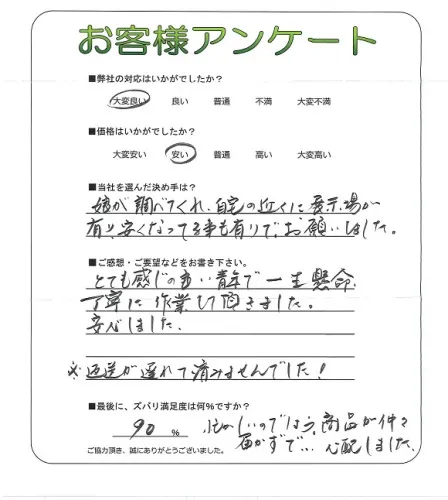 お客様アンケート
■弊社の対応はいかがでしたか?
大変良い 良い 普通 不満 大変不満
■価格はいかがでしたか?
大変安い 安い 普通 高い 大変高い
■当社を選んだ決め手は?
娘が調べてくれ、自宅の近くに展示場が
有り安くなってる事も有りで、お願いしました。
■ご感想・ご要望などをお書き下さい。
とても感じの良い青年で一生懸命
丁寧に作業して頂きました。
安心しました。
※返送が遅れて済みませんでした!
■最後に、ズバリ満足度は何%ですか?
90 % 忙しいのでは?商品が仲々
届かずで… 心配しました。
ご協力頂き、誠にありがとうございました。